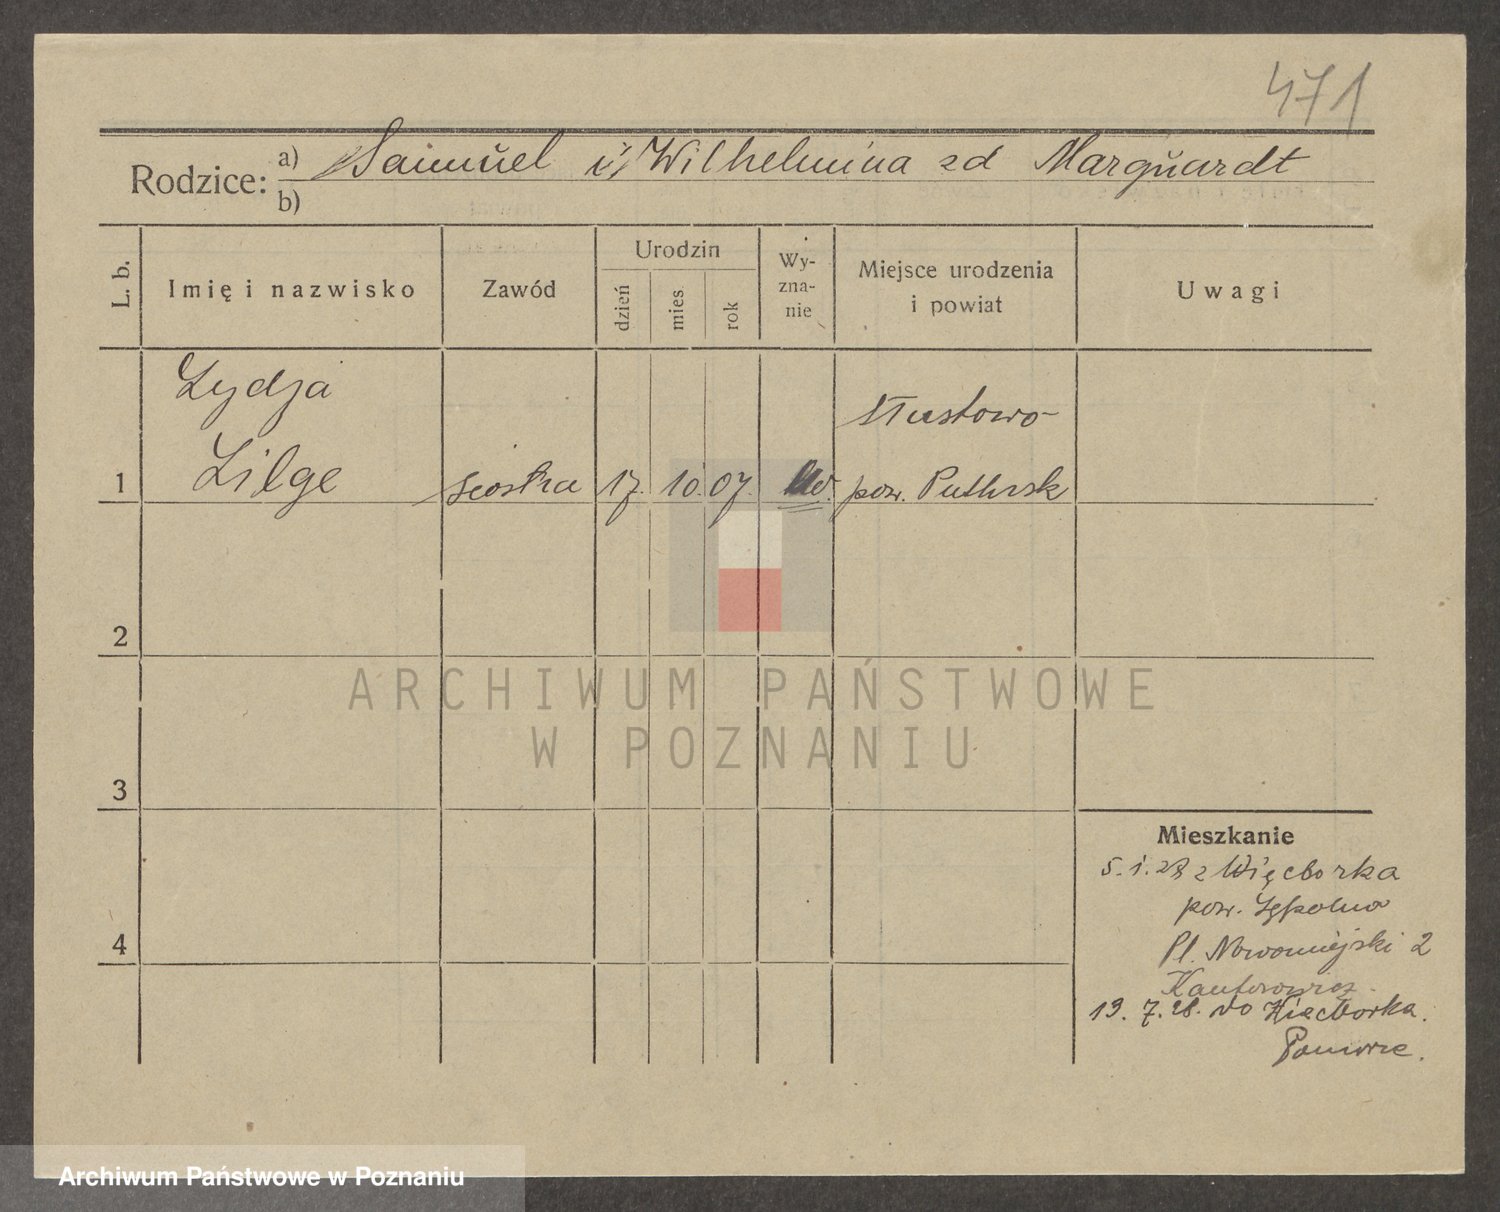 471
Rodzice: a) Samuel i Wilhelmina zd Marguardt
b)
L. b.
Imię i nazwisko
Zawód
Urodzin
dzień
mies
rok
Wy-
zna-
nie
Miejsce urodzenia
i powiat
Uwagi
Lydja
Lilge
1
siostra
17.
10.
07.
Słustowo
pow. Pułtusk
2
3
4
Mieszkanie
5. 1. 28 z Więcborka
pow. Sępolno
Pl. Nowomiejski 2
Kantorowicz.
19. 7. 28. do Więcborka.
Pomorze.
ARCHIWUM PAŃSTWOWE
W POZNANIU
Archiwum Państwowe w Poznaniu